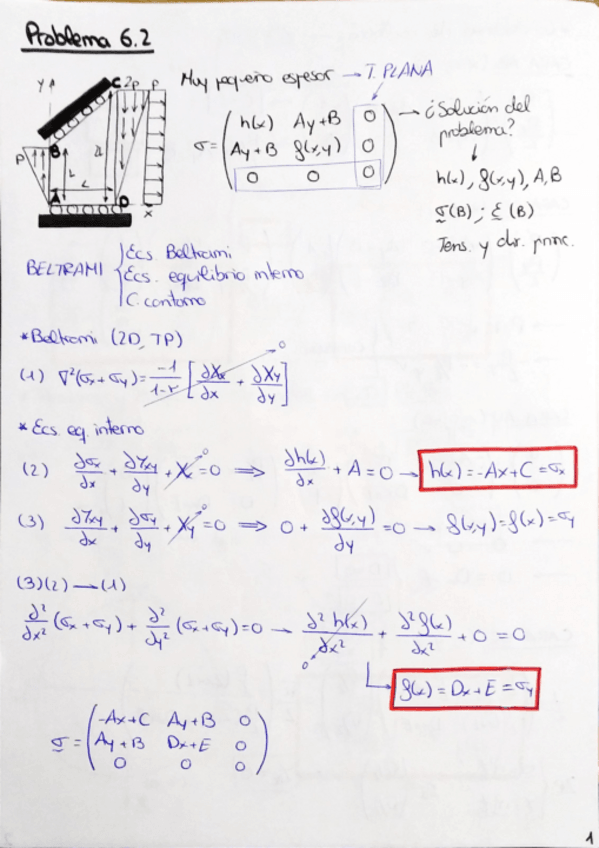 Problema 6.2
Muy pequeño espesor → T. PLANA
Y C 2P P
P B L L A D x
σ = ( h(x) Ay+B 0
Ay+B f(x,y) 0
0 0 0 )
→ ¿Solución del
problema?
↓
h(x), f(x,y), A, B
σ(B); ε(B)
Tens. y dir. princ.
BELTRAMI { Ecs. Beltrami
Ecs. equilibrio interno
C. contorno
*Beltrami (2D, TP)
(1) ∇²(σx+σy) = -1/1-ν [∂Xx/∂x + ∂Xy/∂y] → 0
* Ecs. eq. interno
(2) ∂σx/∂x + ∂τxy/∂y + Xx = 0 ⟹ ∂h(x)/∂x + A = 0 → h(x) = -Ax+C = σx
(3) ∂τxy/∂x + ∂σy/∂y + Xy = 0 ⟹ 0 + ∂f(x,y)/∂y = 0 → f(x,y) = f(x) = σy
(3)(2) → (1)
∂²/∂x² (σx+σy) + ∂²/∂y² (σx+σy) = 0 → ∂²h(x)/∂x² + ∂²f(x)/∂x² + 0 = 0
0
f(x) = Dx+E = σy
σ = ( -Ax+C Ay+B 0
Ay+B Dx+E 0
0 0 0 )
1